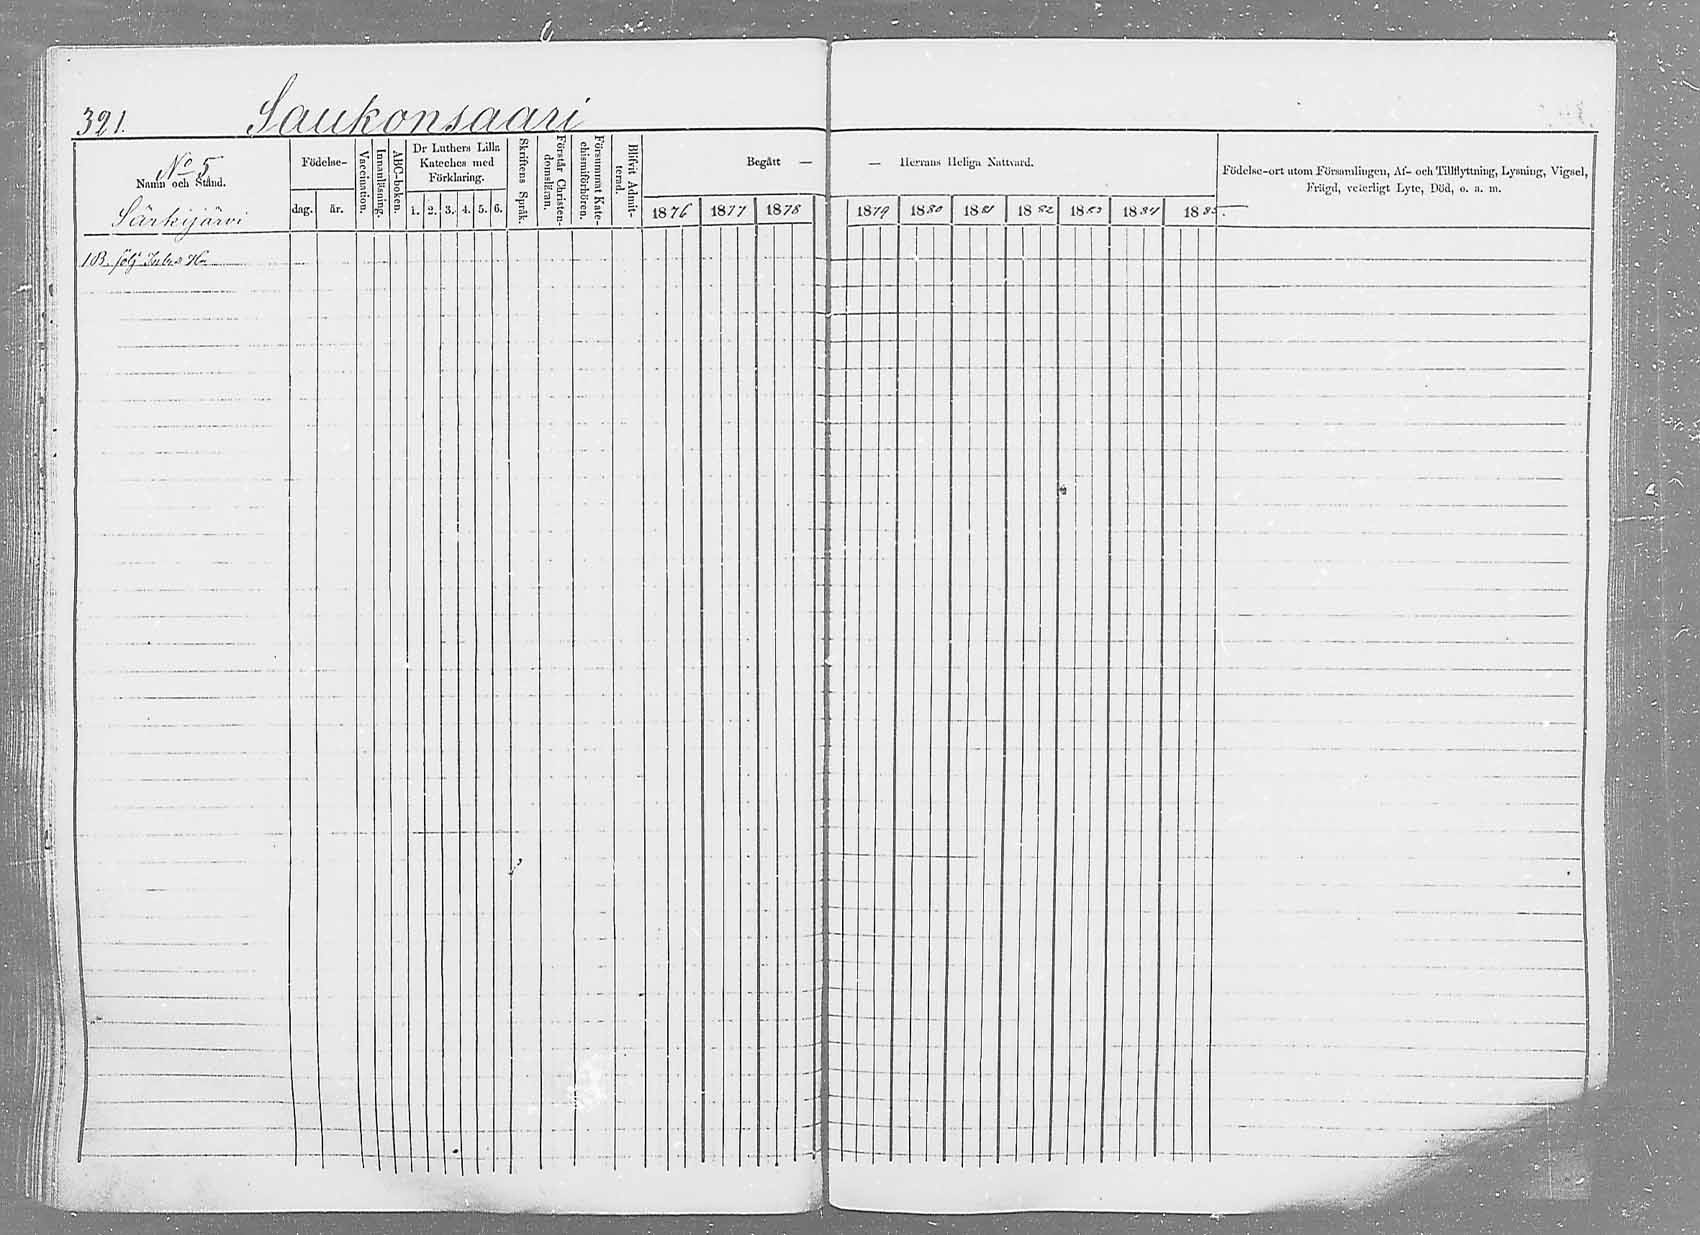 321. Saukonsaari
No 5
Namn och Stånd.
Särkijärvi
Födelse-
dag. år.
Vaccination.
Innanläsning.
ABC-boken.
Dr Luthers Lilla
Kateches med
Förklaring.
1. 2. 3. 4. 5. 6.
Skriftens Språk.
Förstår Christen-
domsläran.
Försummat Kate-
chismiförhören.
Blifvit Admit-
terad.
Begått — — Herrans Heliga Nattvard.
1876 1877 1878 1879 1880 1881 1882 1883 1884 1885.
Födelse-ort utom Församlingen, Af- och Tillflyttning, Lysning, Vigsel,
Frägd, veterligt Lyte, Död, o. a. m.